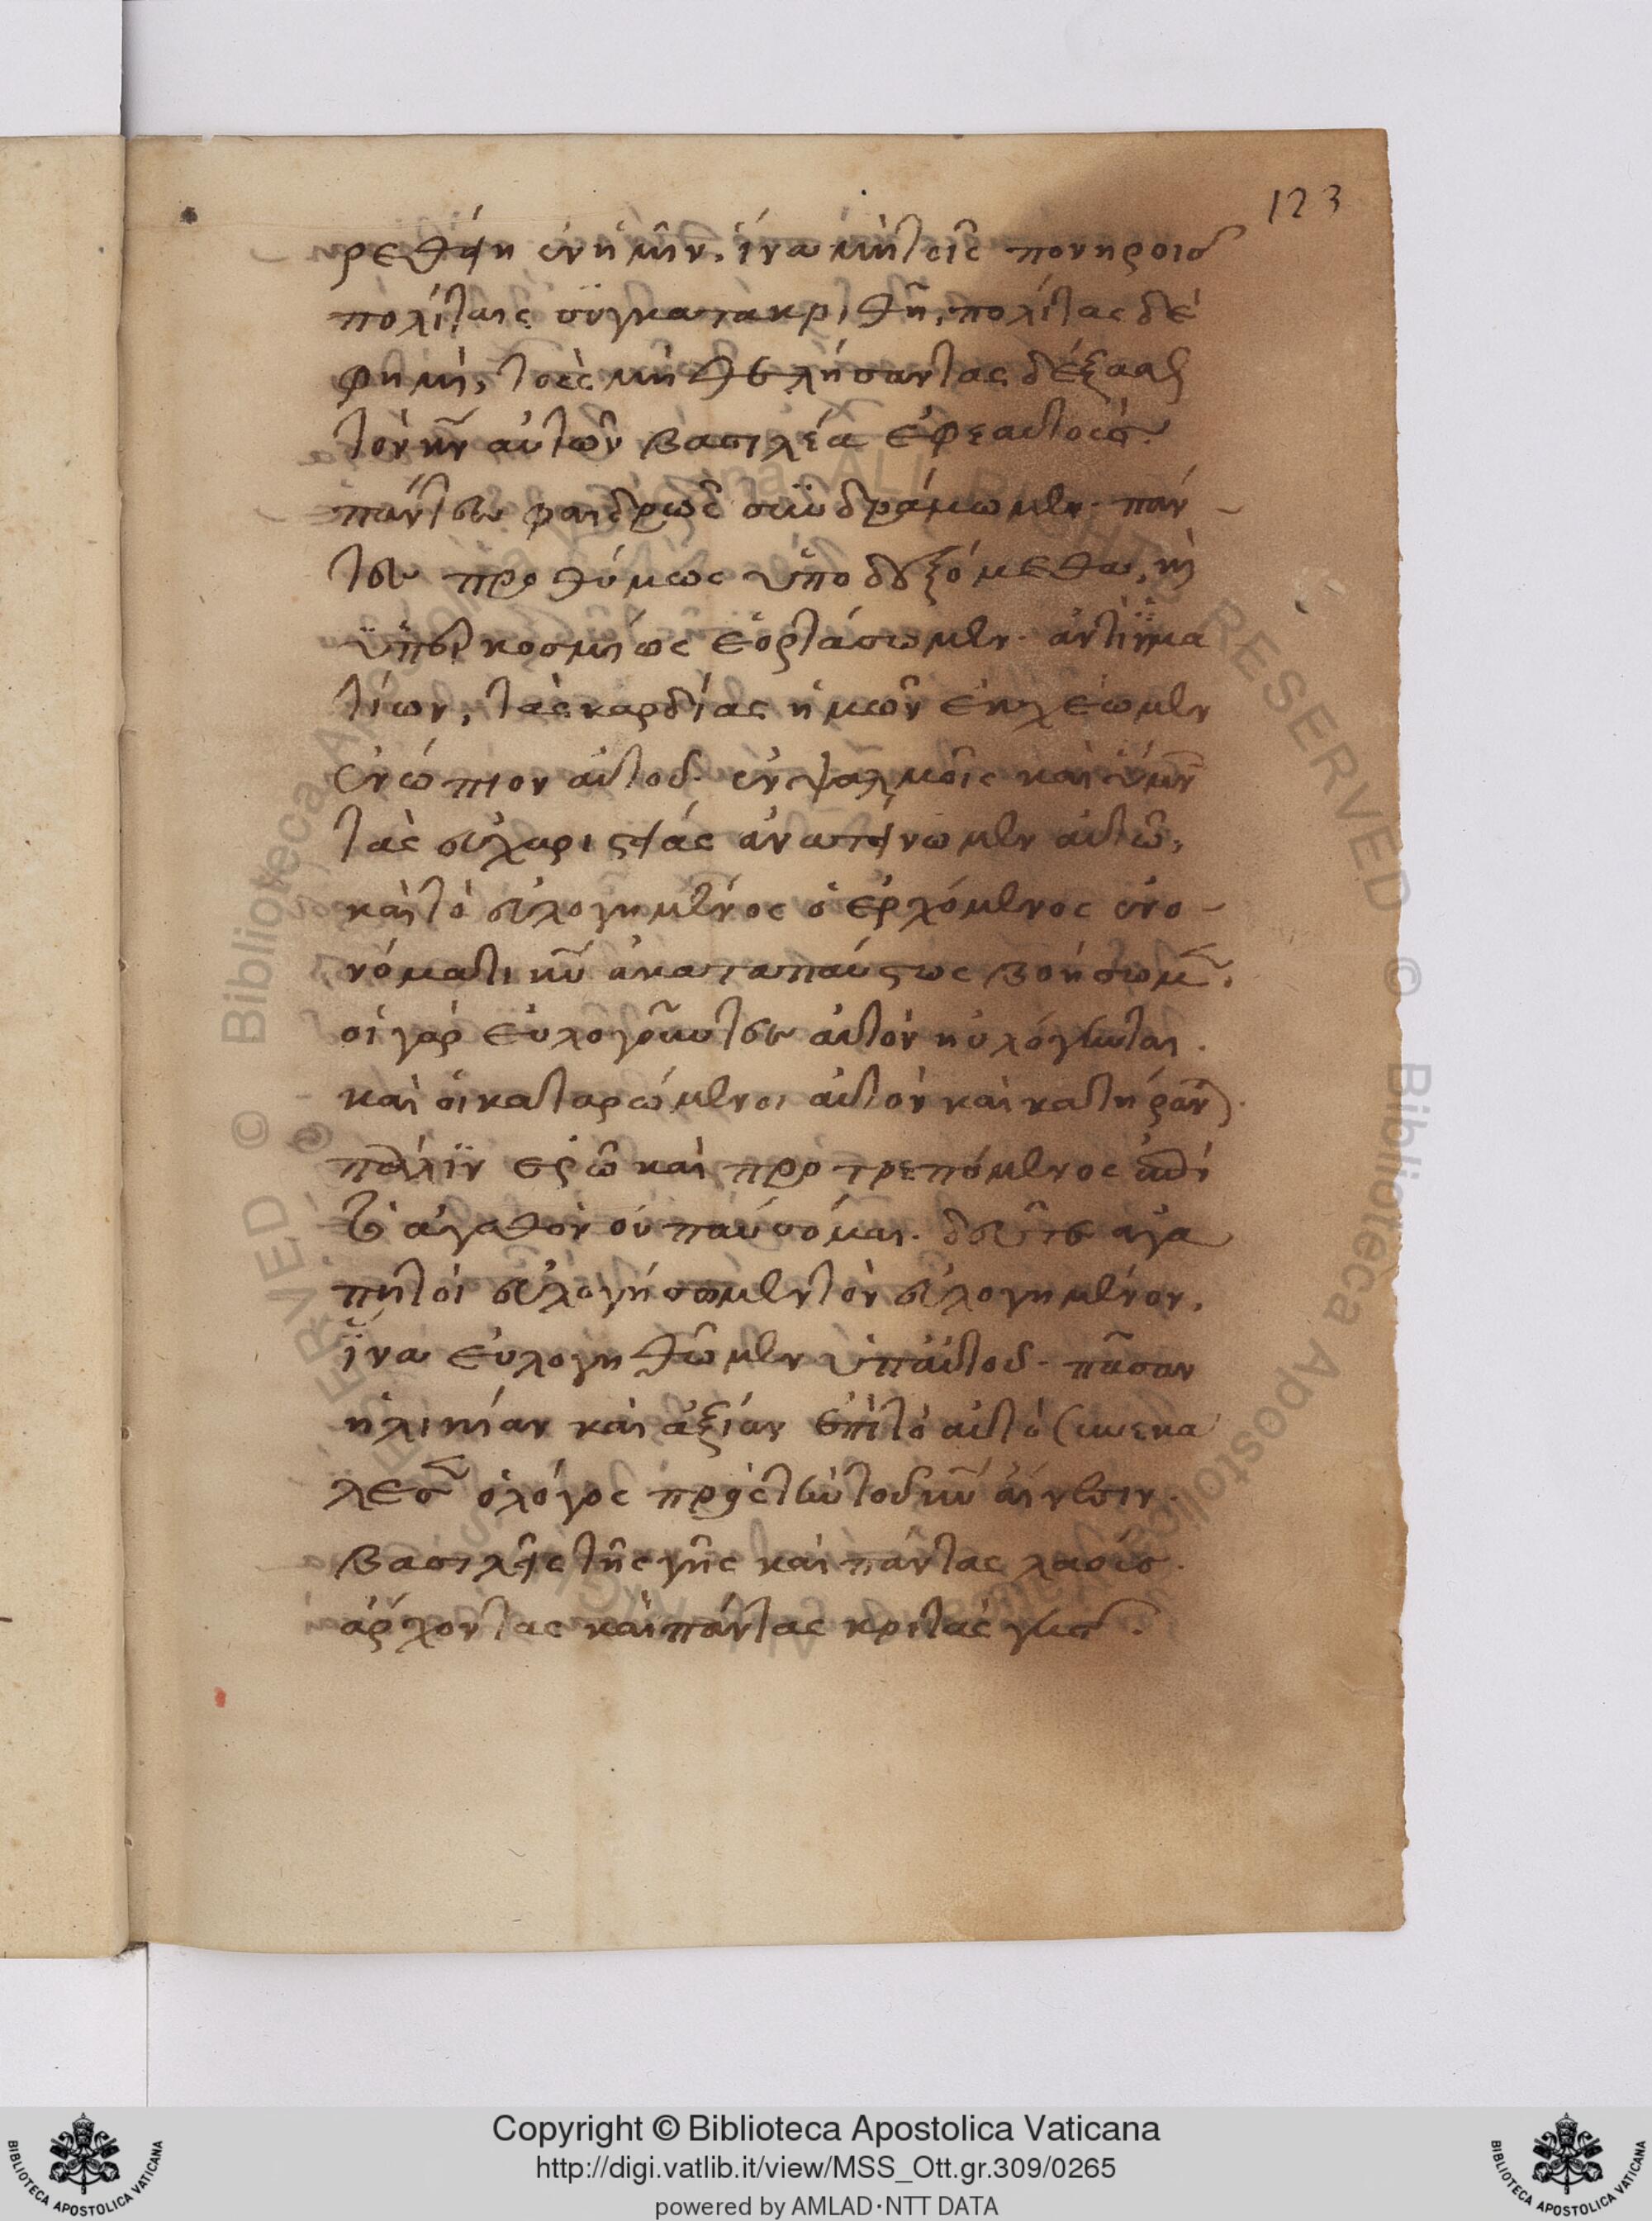 123
ρεθείη ἐν ἡμῖν. ἵνα μὴ τοῖς πονηροῖς
πολίταις συγκατακριθῆ. πολίτας δέ
φημι, τοὺς μὴ θελήσαντας δέξασθαι
τὸν κν αὐτῶν βασιλέα ἐφεαυτούς.
πάντες φαιδρῶς συνδράμωμεν. πάν
τες προθύμως ὑποδεξόμεθα, καὶ
κοσμίως ἑορτάσωμεν. ἀντὶ ἱμα
τίων, τὰς καρδίας ἡμῶν ἐκχέωμεν
ἐνώπιον αὐτοῦ. ἐν ψαλμοῖς καὶ ὕμνοις
τὰς εὐχαριστίας ἀνατείνωμεν αὐτῶ,
καὶ τὸ εὐλογημένος ὁ ἐρχόμενος ἐν ὀ
νόματι κυ ἀκαταπαύστως βοήσωμεν.
οἱ γὰρ εὐλογοῦντες αὐτὸν ηὐλόγηνται.
καὶ οἱ καταρώμενοι αὐτὸν καὶ κατήρανται.
πάλιν ἐρῶ καὶ προτρεπόμενος ἐπὶ
τὸ ἀγαθὸν οὐ παύσομαι. δεῦτε ἀγα
πητοὶ εὐλογήσωμεν τὸν εὐλογημένον.
ἵνα εὐλογηθῶμεν ὑπ αὐτοῦ. πᾶσαν
ἡλικίαν καὶ ἀξίαν ἐπὶ τὸ αὐτὸ συνεκα
λεσεν ὁ λόγος πρὸς τὴν τοῦ κυ αἴνεσιν.
βασιλεῖς τῆς γῆς καὶ πάντας λαούς.
ἄρχοντας καὶ πάντας κριτὰς γῆς.
Copyright © Biblioteca Apostolica Vaticana
http://digi.vatlib.it/view/MSS_Ott.gr.309/0265
powered by AMLAD·NTT DATA